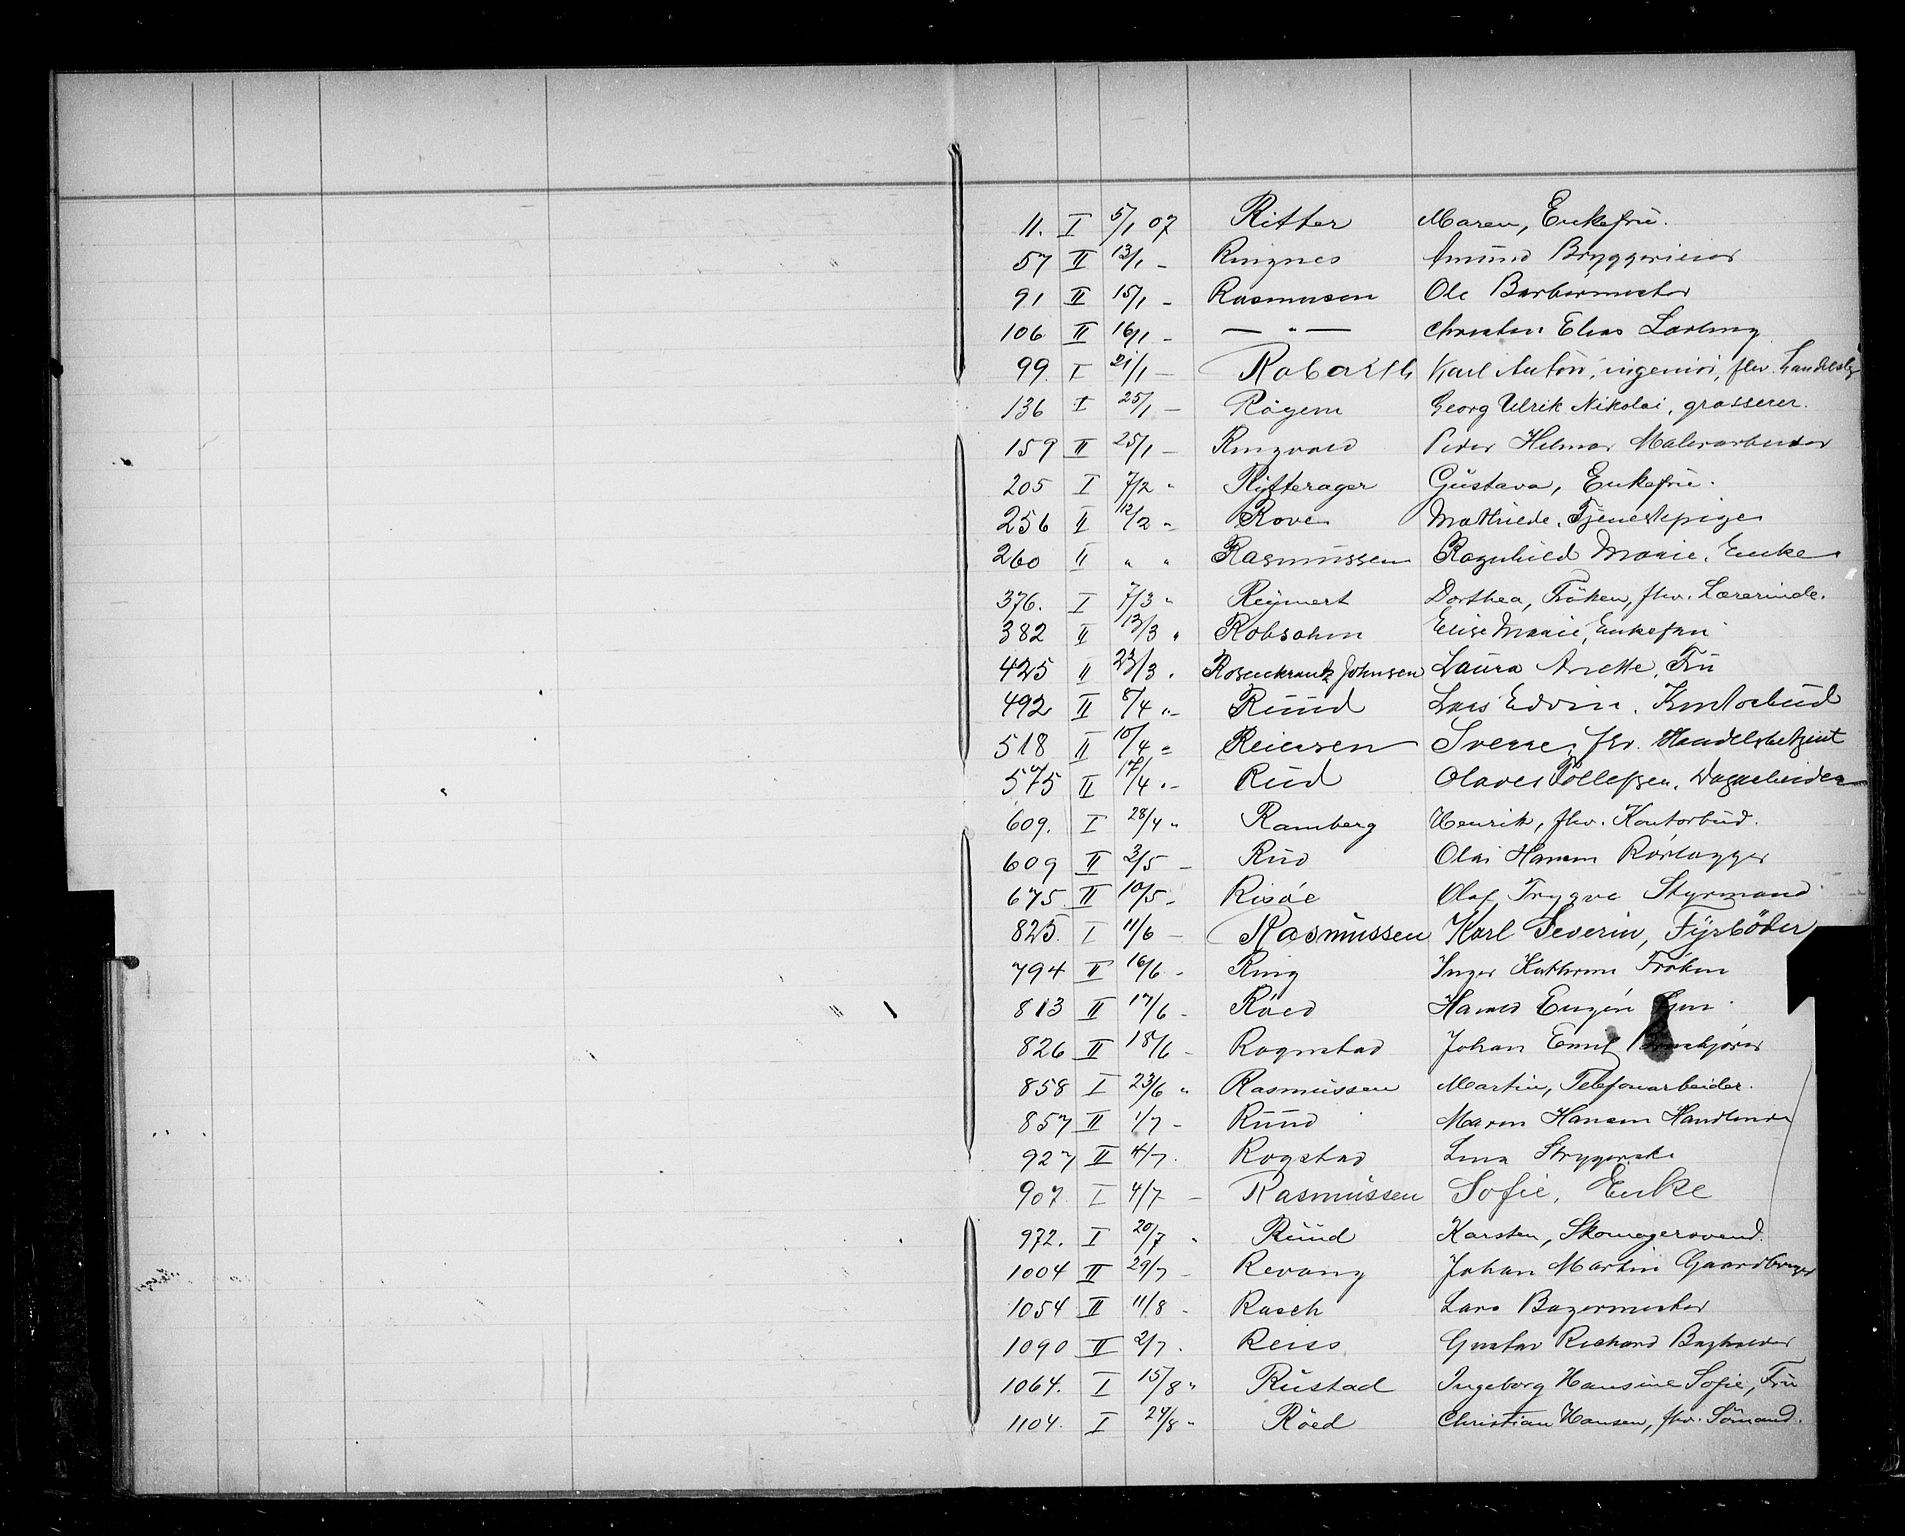 11. I 5/1 07 Ritter Maren, Enkefru.
57 II 13/1 - Ringnes Amund Bryggerieier
91 II 15/1 - Rasmussen Ole Barbermester
106 II 16/1 - — " — Christen Elias Lærling
99. I 21/1 — Robarth Karl Anton, ingeniør, flw.
136 I 25/1 — Røgem Georg Ulrik Nikolai, grosserer.
159 II 25/1 — Ringvold Peder Hilmar Malerarbeider
205 I 7/2 " Rytterager Gustava, Enkefru.
256 II 12/2 " Rove Mathilde, Tjenestepige
260 II " " Rasmussen Ragnhild Marie, Enke
376. I 7/3 " Reymert Dorthea, Frøken, fhv. Lærerinde.
382 II 13/3 " Robsahm Elise Marie, Enkefru
425 II 23/3 " Rosenkrantz Johnsen Laura Anette, Fru
492 II 8/4 "- Ruud Lars Edvin, Kontorbud
518 II 10/4 " Reiersen Sverre, fhv. Handelsbetjent
575 II 17/4 "- Rud Olaves Tollefsen, Dagarbeider
609. I 28/4 " Ramberg Henrik, fhv. Kontorbud.
609 II 3/5 — Rud Olai Hansen Rørlægger
675 II 10/5 - Risøe Olaf Trygve Styrmand
825. I 11/6 — Rasmussen Karl Severin, Fyrbøder
794 II 16/6 - Ring Inger Kathrine Frøken
813 II 17/6 - Røed Harald Eugen
826 II 18/6 - Rognstad Johan Emil
858 I 23/6 " Rasmussen Martin, Telefonarbeider.
857 II 1/7 - Ruud Maren Hansen Handlende
927 II 4/7. Rogstad Lina Strygerske
907 I 4/7 — Rasmussen Sofie, Enke
972. I 20/7 " Ruud Karsten, Skomagersvend.
1004 II 29/7 - Revang Johan Martin Gaardbruger
1054 II 11/8 - Rasch Lars Bagermester
1090 II 2/7. Reiss Gustav Richard Bogholder
1064. I 15/8 " Rustad Ingeborg Hansine Sofie, Fru
1104. I 24/8 " Røed Christian Hansen, fhv. Sømand.